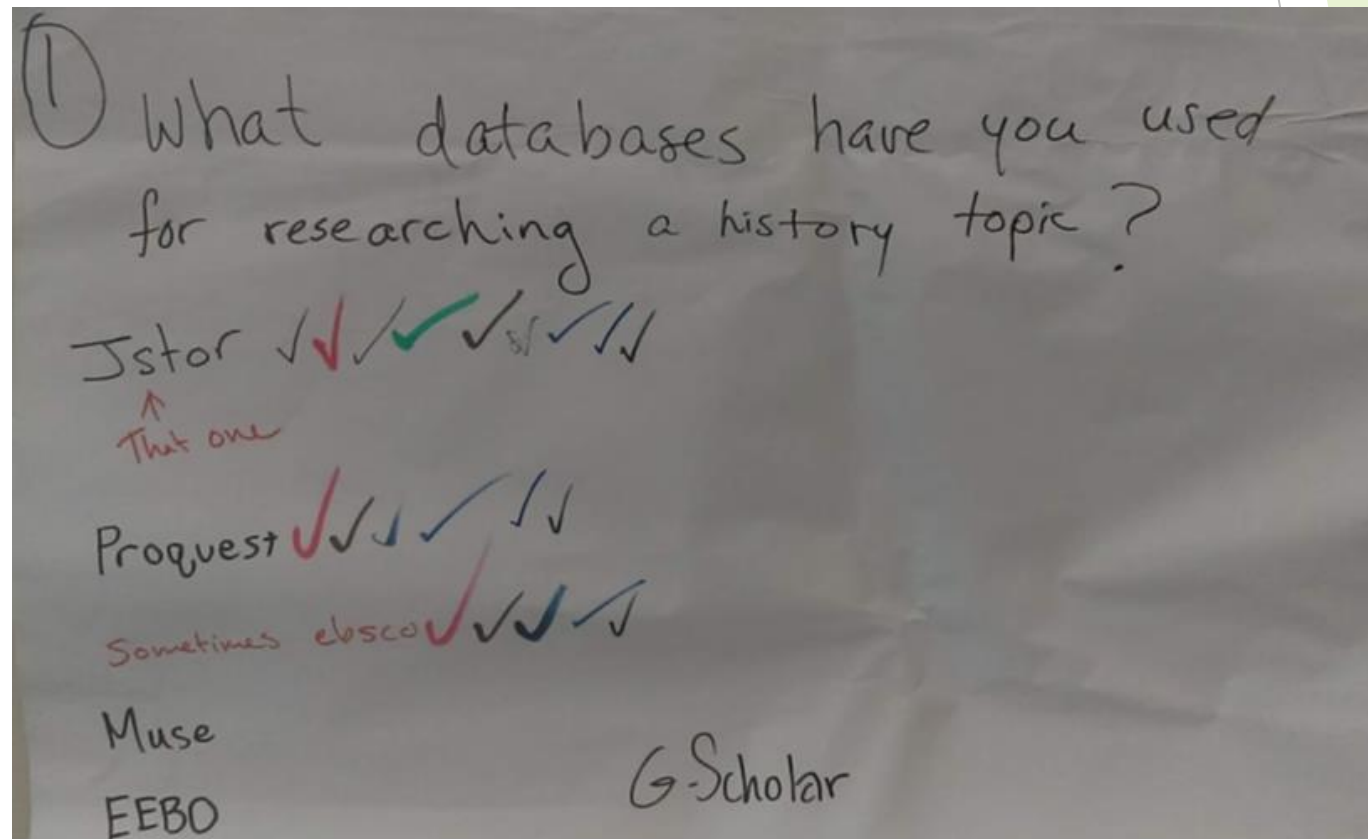 ① What databases have you used
for researching a history topic?
Jstor ✓✓✓✓✓✓✓✓✓✓
↑
That one
Proquest ✓✓✓✓✓✓
Sometimes ebsco ✓✓✓✓✓
Muse
G.Scholar
EEBO